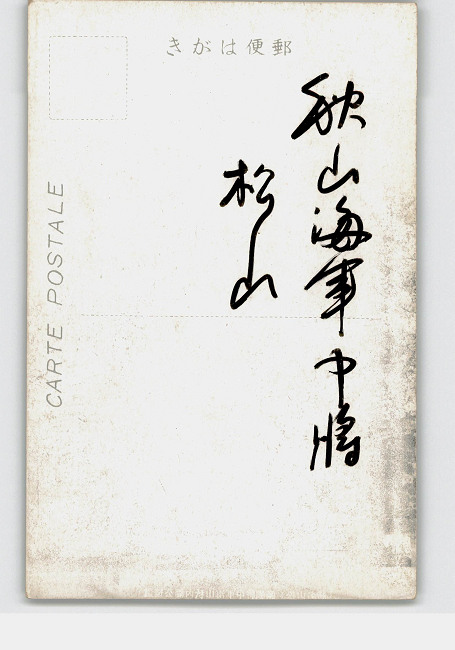 郵便はがき
秋山海軍中將
松山
CARTE POSTALE